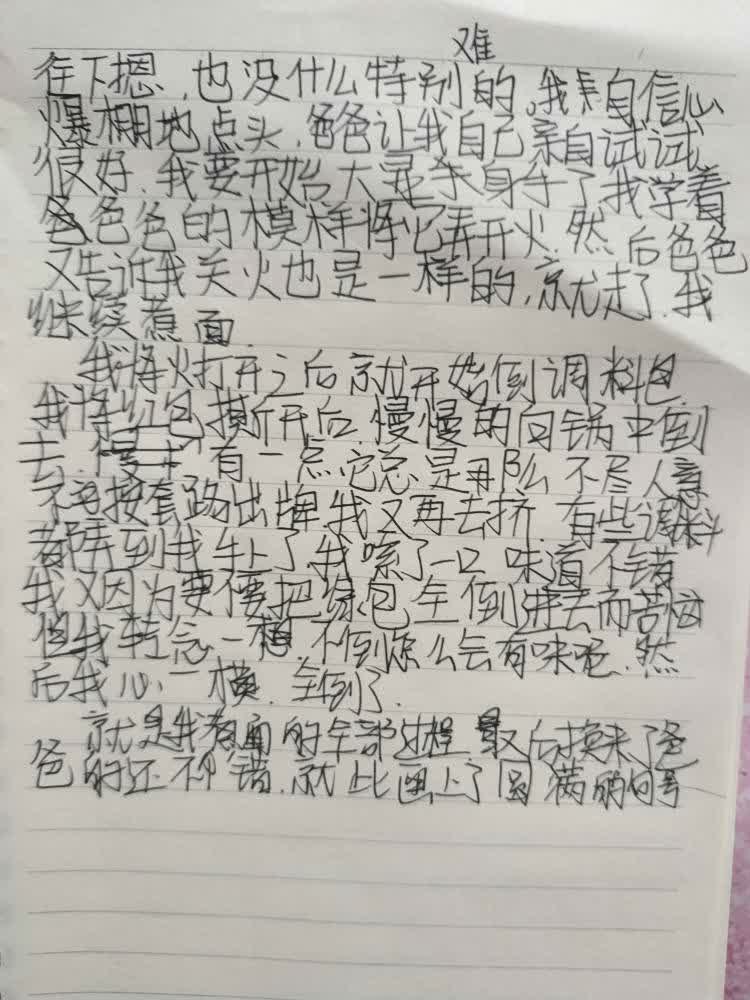 难
往下摁,也没什么特别的,我自信心
爆棚地点头,爸爸让我自己亲自试试,
很好,我要开始大显身手了我学着
爸爸的模样将它弄开火,然后爸爸
又告诉我关火也是一样的,就走了,我
继续煮面.
我将火打开之后就开始倒调料包.
我将红包撕开后,慢慢的向锅中倒
去,有一点它总是那么不尽人意
不按套路出牌,我又再去挤,有些调料
都弄到我手上了,我嗦了一口,味道不错
我又因为要不要把绿包全倒进去而苦恼
但我转念一想,不倒怎么会有味呢,然
后我心一横,全倒了.
就是我煮面的全部过程,最后换来了爸
爸的还不错,就此画上了圆满的句号